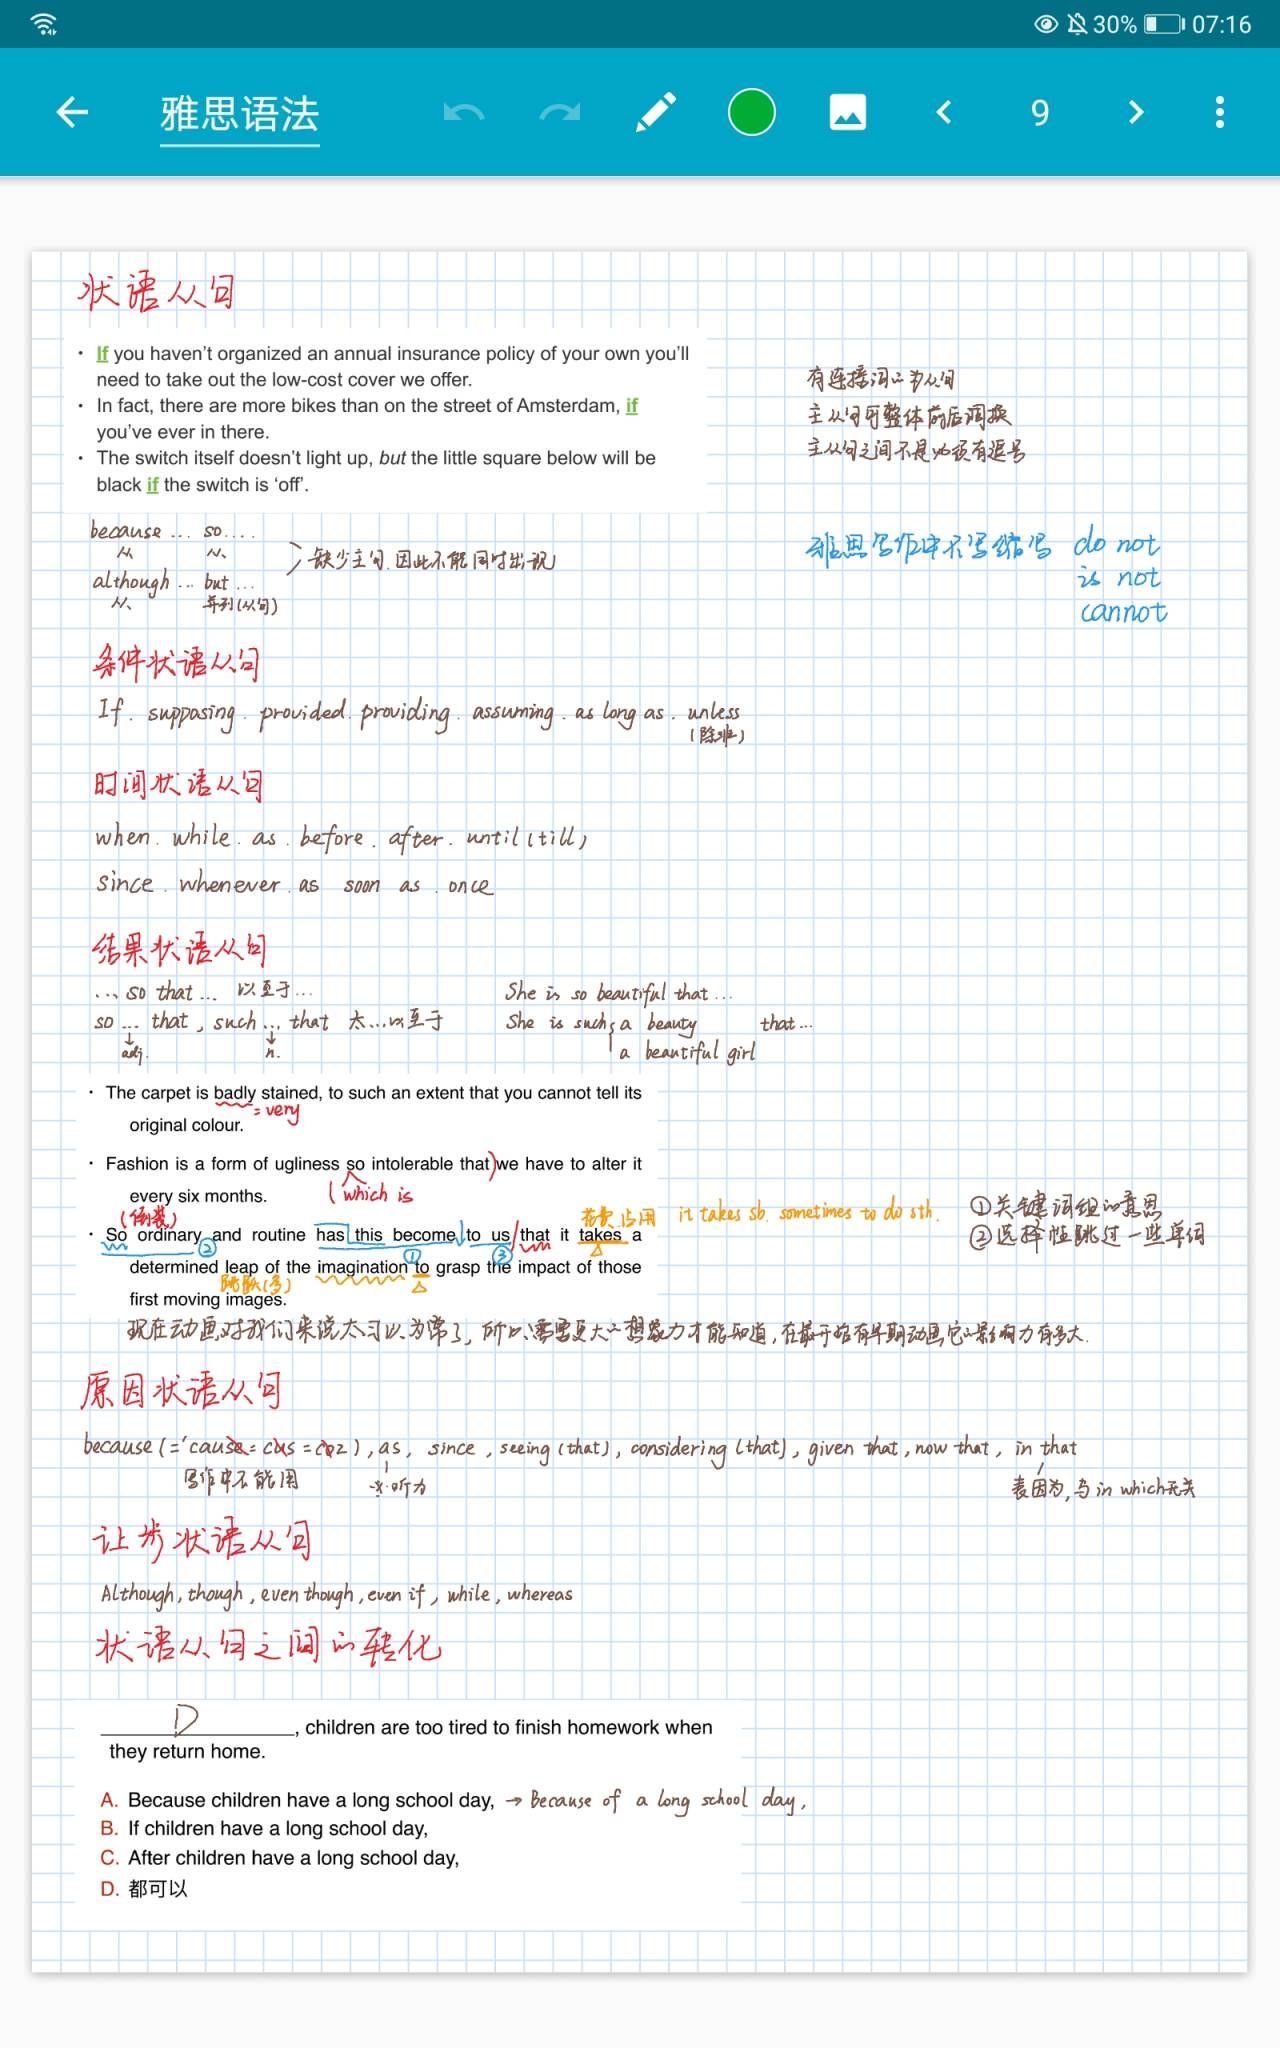 30% 07:16
雅思语法 9
状语从句
· If you haven't organized an annual insurance policy of your own you'll
need to take out the low-cost cover we offer.
· In fact, there are more bikes than on the street of Amsterdam, if
you've ever in there.
· The switch itself doesn't light up, but the little square below will be
black if the switch is 'off'.
有连接词的为从句
主从句可整体前后调换
主从句之间不是必须有逗号
because ... so ....
从 从
although ... but ...
从 并列(从句)
缺少主句.因此不能同时出现
雅思写作中不写缩写 do not
is not
cannot
条件状语从句
If. supposing. provided. providing. assuming. as long as. unless
(除非)
时间状语从句
when. while. as. before. after. until (till)
since. whenever. as soon as. once
结果状语从句
... so that ... 以至于...
so ... that, such ... that 太...以至于
adj. n.
She is so beautiful that ...
She is such a beauty that ...
a beautiful girl
· The carpet is badly stained, to such an extent that you cannot tell its
= very
original colour.
· Fashion is a form of ugliness so intolerable that we have to alter it
every six months.
(which is
(倒装)
花费.占用 it takes sb. sometimes to do sth.
①关键词组的意思
②选择性跳过一些单词
· So ordinary and routine has this become to us that it takes a
② ① ③
determined leap of the imagination to grasp the impact of those
跳跃(多)
first moving images.
现在动画对我们来说太习以为常了,所以需要更大的想象力才能知道,在最开始有早期动画它的影响力有多大.
原因状语从句
because (= 'cause = cus = coz), as, since, seeing (that), considering (that), given that, now that, in that
写作中不能用
听力
表因为,与 in which无关
让步状语从句
Although, though, even though, even if, while, whereas
状语从句之间的转化
D
, children are too tired to finish homework when
they return home.
A. Because children have a long school day, → Because of a long school day,
B. If children have a long school day,
C. After children have a long school day,
D. 都可以